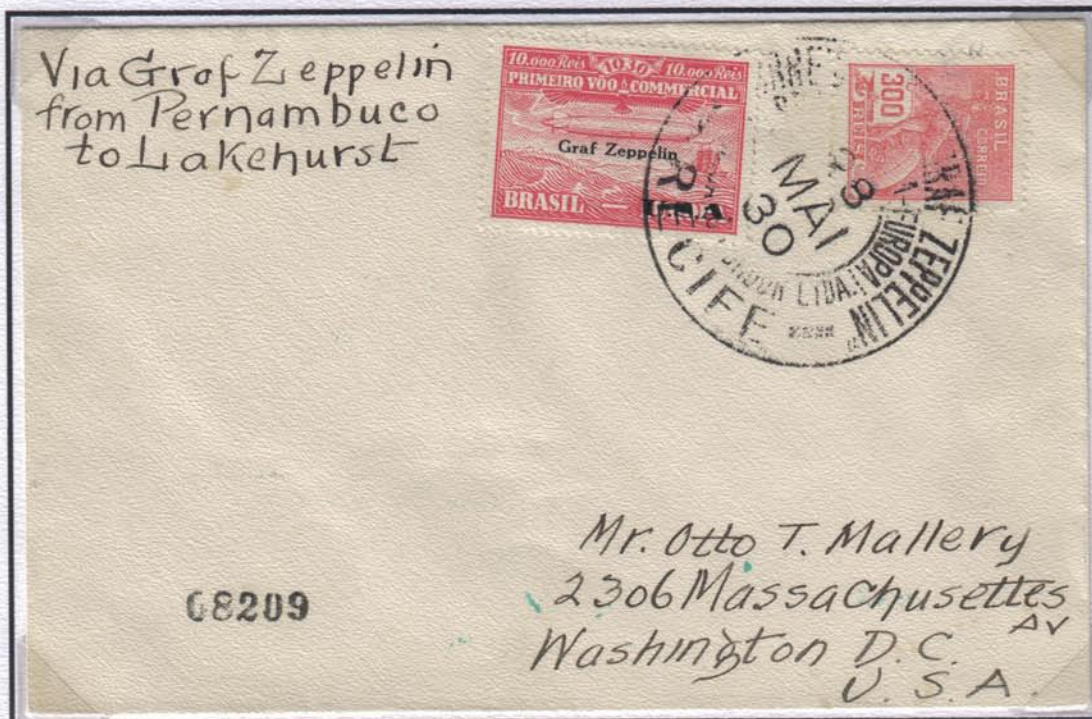 Via Graf Zeppelin
from Pernambuco
to Lakehurst
10.000 Reis 1930 10.000 Reis
PRIMEIRO VÔO COMMERCIAL
Graf Zeppelin
BRASIL
300
REIS
BRASIL
CORREIO
28
MAI
30
ZEPPELIN"
EUROPA
LTDA.
RECIFE
Mr. Otto T. Mallery
2306 Massachusettes
Av
Washington D.C.
U.S.A.
08209